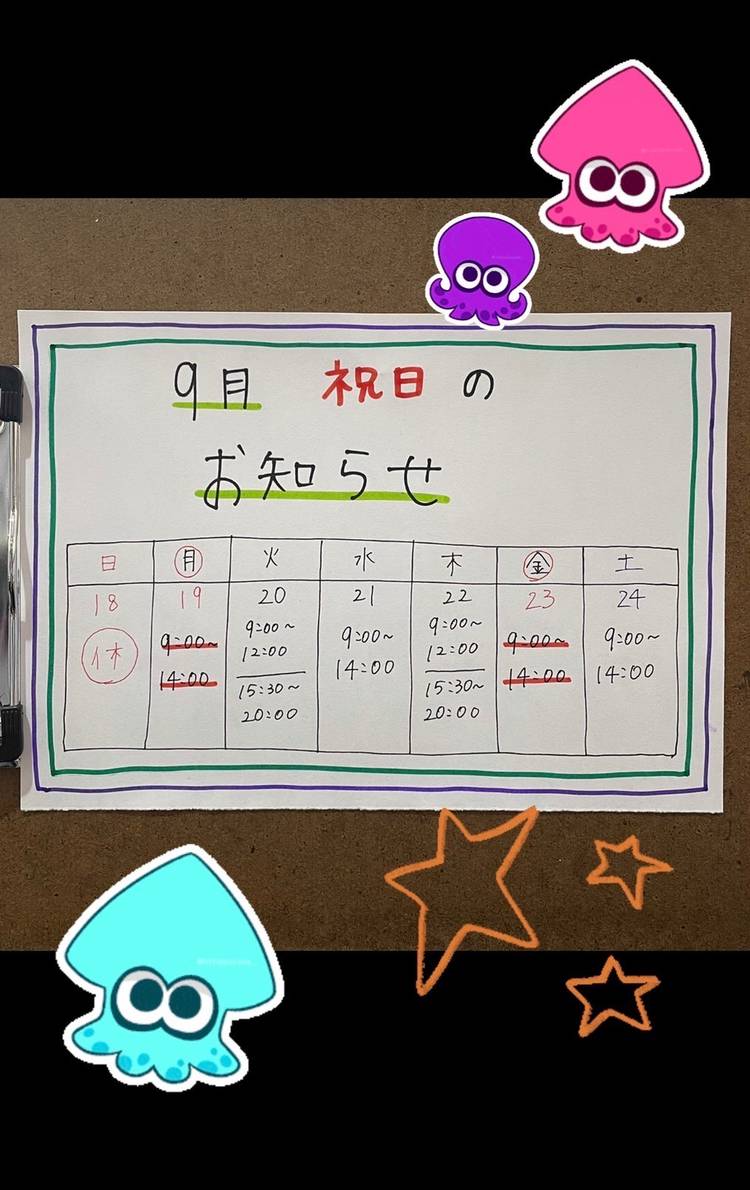 9月 祝日の
お知らせ
日 月 火 水 木 金 土
18 19 20 21 22 23 24
休
9:00~
14:00
9:00~
12:00
15:30~
20:00
9:00~
14:00
9:00~
12:00
15:30~
20:00
9:00~
14:00
9:00~
14:00